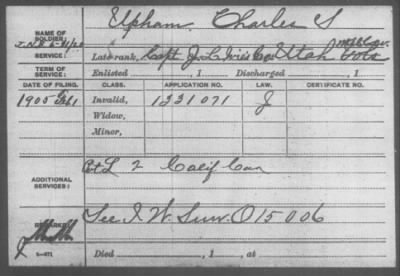 NAME OF SOLDIER:
Upham, Charles S
SERVICE:
Late rank, Capt. J. L. Co. Utah Vols
TERM OF SERVICE:
Enlisted , 1 Discharged , 1
DATE OF FILING. CLASS. APPLICATION NO. LAW. CERTIFICATE NO.
1905 Feb 1 Invalid, 1331071 J
Widow,
Minor,
ADDITIONAL SERVICES:
L 2 Calif Cav
REMARKS:
See I. W. Surv. O 15006
Died , 1 , at